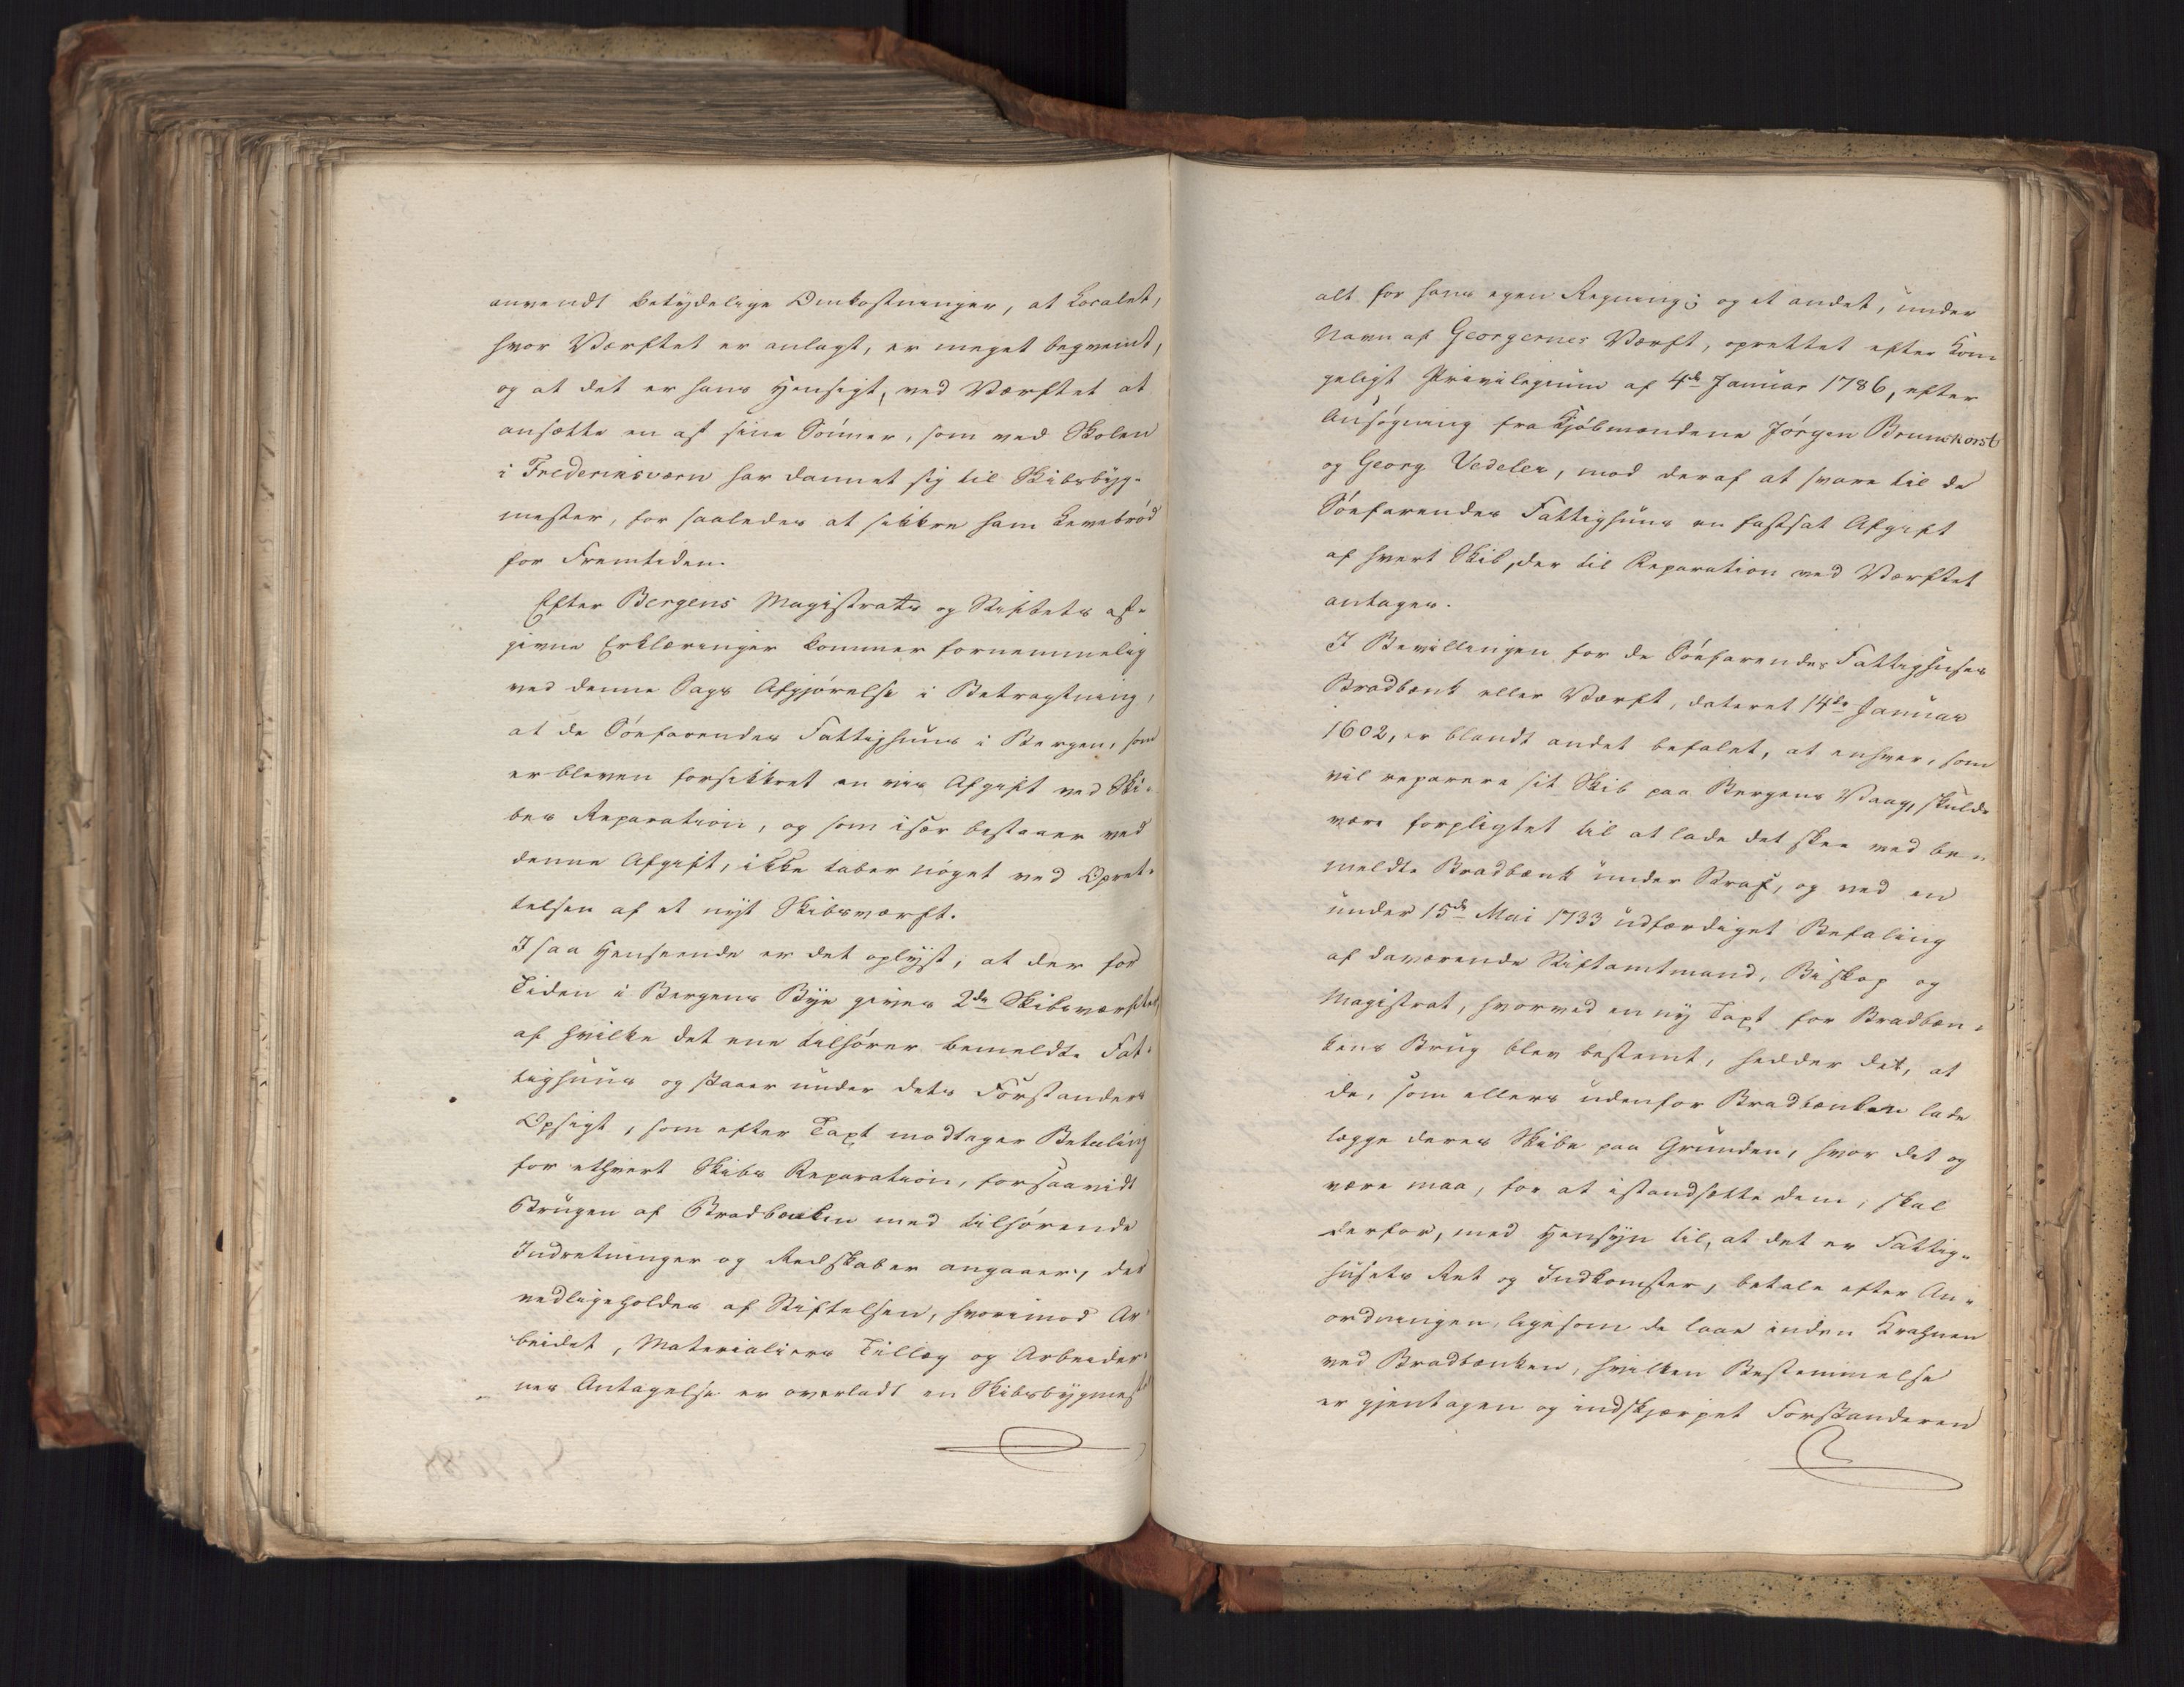 anvendt betydelige Omkostninger, at Localet,
hvor Værftet er anlagt, er meget beqvemt,
og at det er hans Hensigt, ved Værftet at
ansætte en af sine Sönner, som ved Skolen
i Frederiksværn har dannet sig til Skibsbyg-
mester, for saaledes at sikkre ham Levebröd
for Fremtiden.
Efter Bergens Magistrats og Stiftets af-
givne Erklæringer kommer fornemmelig
ved denne Sags Afgjörelse i Betragtning,
at de Söefarendes Fattighuus i Bergen, som
er bleven forsikkret en vis Afgift ved Ski-
bes Reparation, og som især bestaaer ved
denne Afgift, ikke taber noget ved Opret-
telsen af et nyt Skibsværft.
I saa Henseende er det oplyst, at der for
Tiden i Bergens Bye gives 2de Skibsværfter,
af hvilke det ene tilhörer bemeldte Fat-
tighuus og staaer under dets Forstanders
Opsigt, som efter Taxt modtager Betaling
for ethvert Skibs Reparation, forsaavidt
Brugen af Bradbænken med tilhörende
Indretninger og Redskaber angaaer, der
vedligeholdes af Stiftelsen, hvorimod Ar-
beidet, Materialiers Tillæg og Arbeider-
nes Antagelse er overladt en Skibsbygmester
alt for hans egen Regning; og et andet, under
Navn af Georgernes Værft, oprettet efter Kon-
geligt Privilegium af 4de Januar 1786, efter
Ansögning fra Kjöbmændene Jörgen Brunchorst
og Georg Vedeler, mod deraf at svare til de
Söefarendes Fattighuus en fastsat Afgift
af hvert Skib, der til Reparation ved Værftet
antages.
I Bevillingen for de Söefarendes Fattighuses
Bradbænk eller Værft, dateret 14de Januar
1602, er blandt andet befalet, at enhver, som
vil reparere sit Skib paa Bergens Vaag, skulde
være forpligtet til at lade det skee ved be-
meldte Bradbænk under Straf, og ved en
under 15de Mai 1733 udfærdiget Befaling
af daværende Stiftamtmand, Biskop og
Magistrat, hvorved en ny Taxt for Bradbæn-
kens Brug blev bestemt, hedder det, at
de, som ellers udenfor Bradbænken lade
lægge deres Skibe paa Grunden, hvor det og
være maa, for at istandsætte dem, skal
derfor, med Hensyn til, at det er Fattig-
husets Ret og Indkomster, betale efter An-
ordningen, ligesom de laae inden Krahnen
ved Bradbænken, hvilken Bestemmelse
er gjentagen og indskjærpet Forstanderen